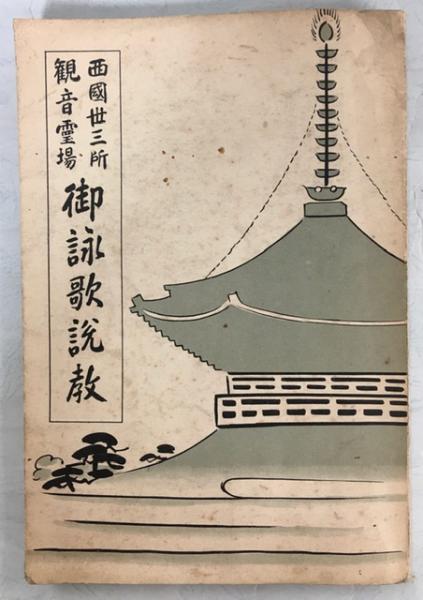 西國卅三所
観音霊場
御詠歌説教